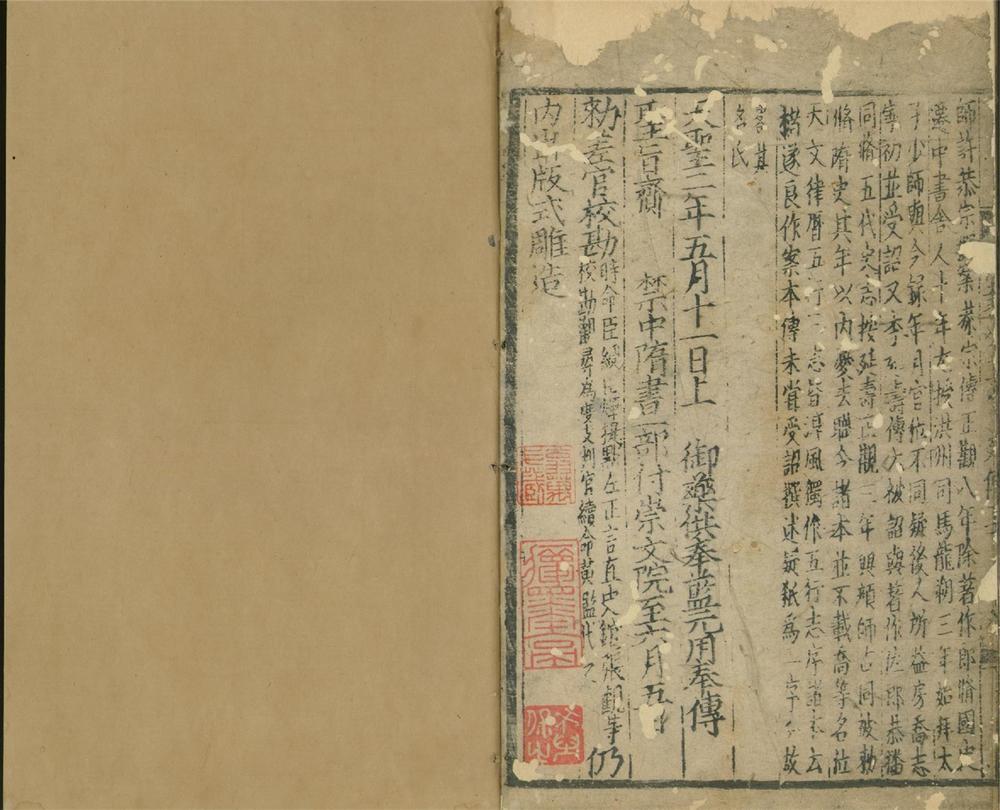 師許恭宗 案恭宗傳正觀八年除著作郎脩國史
遷中書舍人十年左授洪州司馬龍朔三年始拜太
子少師與今錄年月官位不同疑後人所益房喬志
寧初並受詔又李延壽傳云被詔與著作佐郎恭播
同脩五代史志按延壽正觀三年與顔師古同被勑
脩隋史其年以内憂去職今諸本並不載喬等名位
天文律曆五行三志皆淳風獨作五行志序諸本云
褚遂良作案本傳未嘗受詔撰述疑秖爲一序今故
略其
名氏
天聖二年五月十一日上 御藥供奉藍元用奉傳
聖旨齎 禁中隋書一部付崇文院至六月五日
勑差官校勘 時命臣綬臣燁提點左正言直史館張觀等
校勘觀尋爲度支判官續命黃鑑代之 仍
内出版式雕造